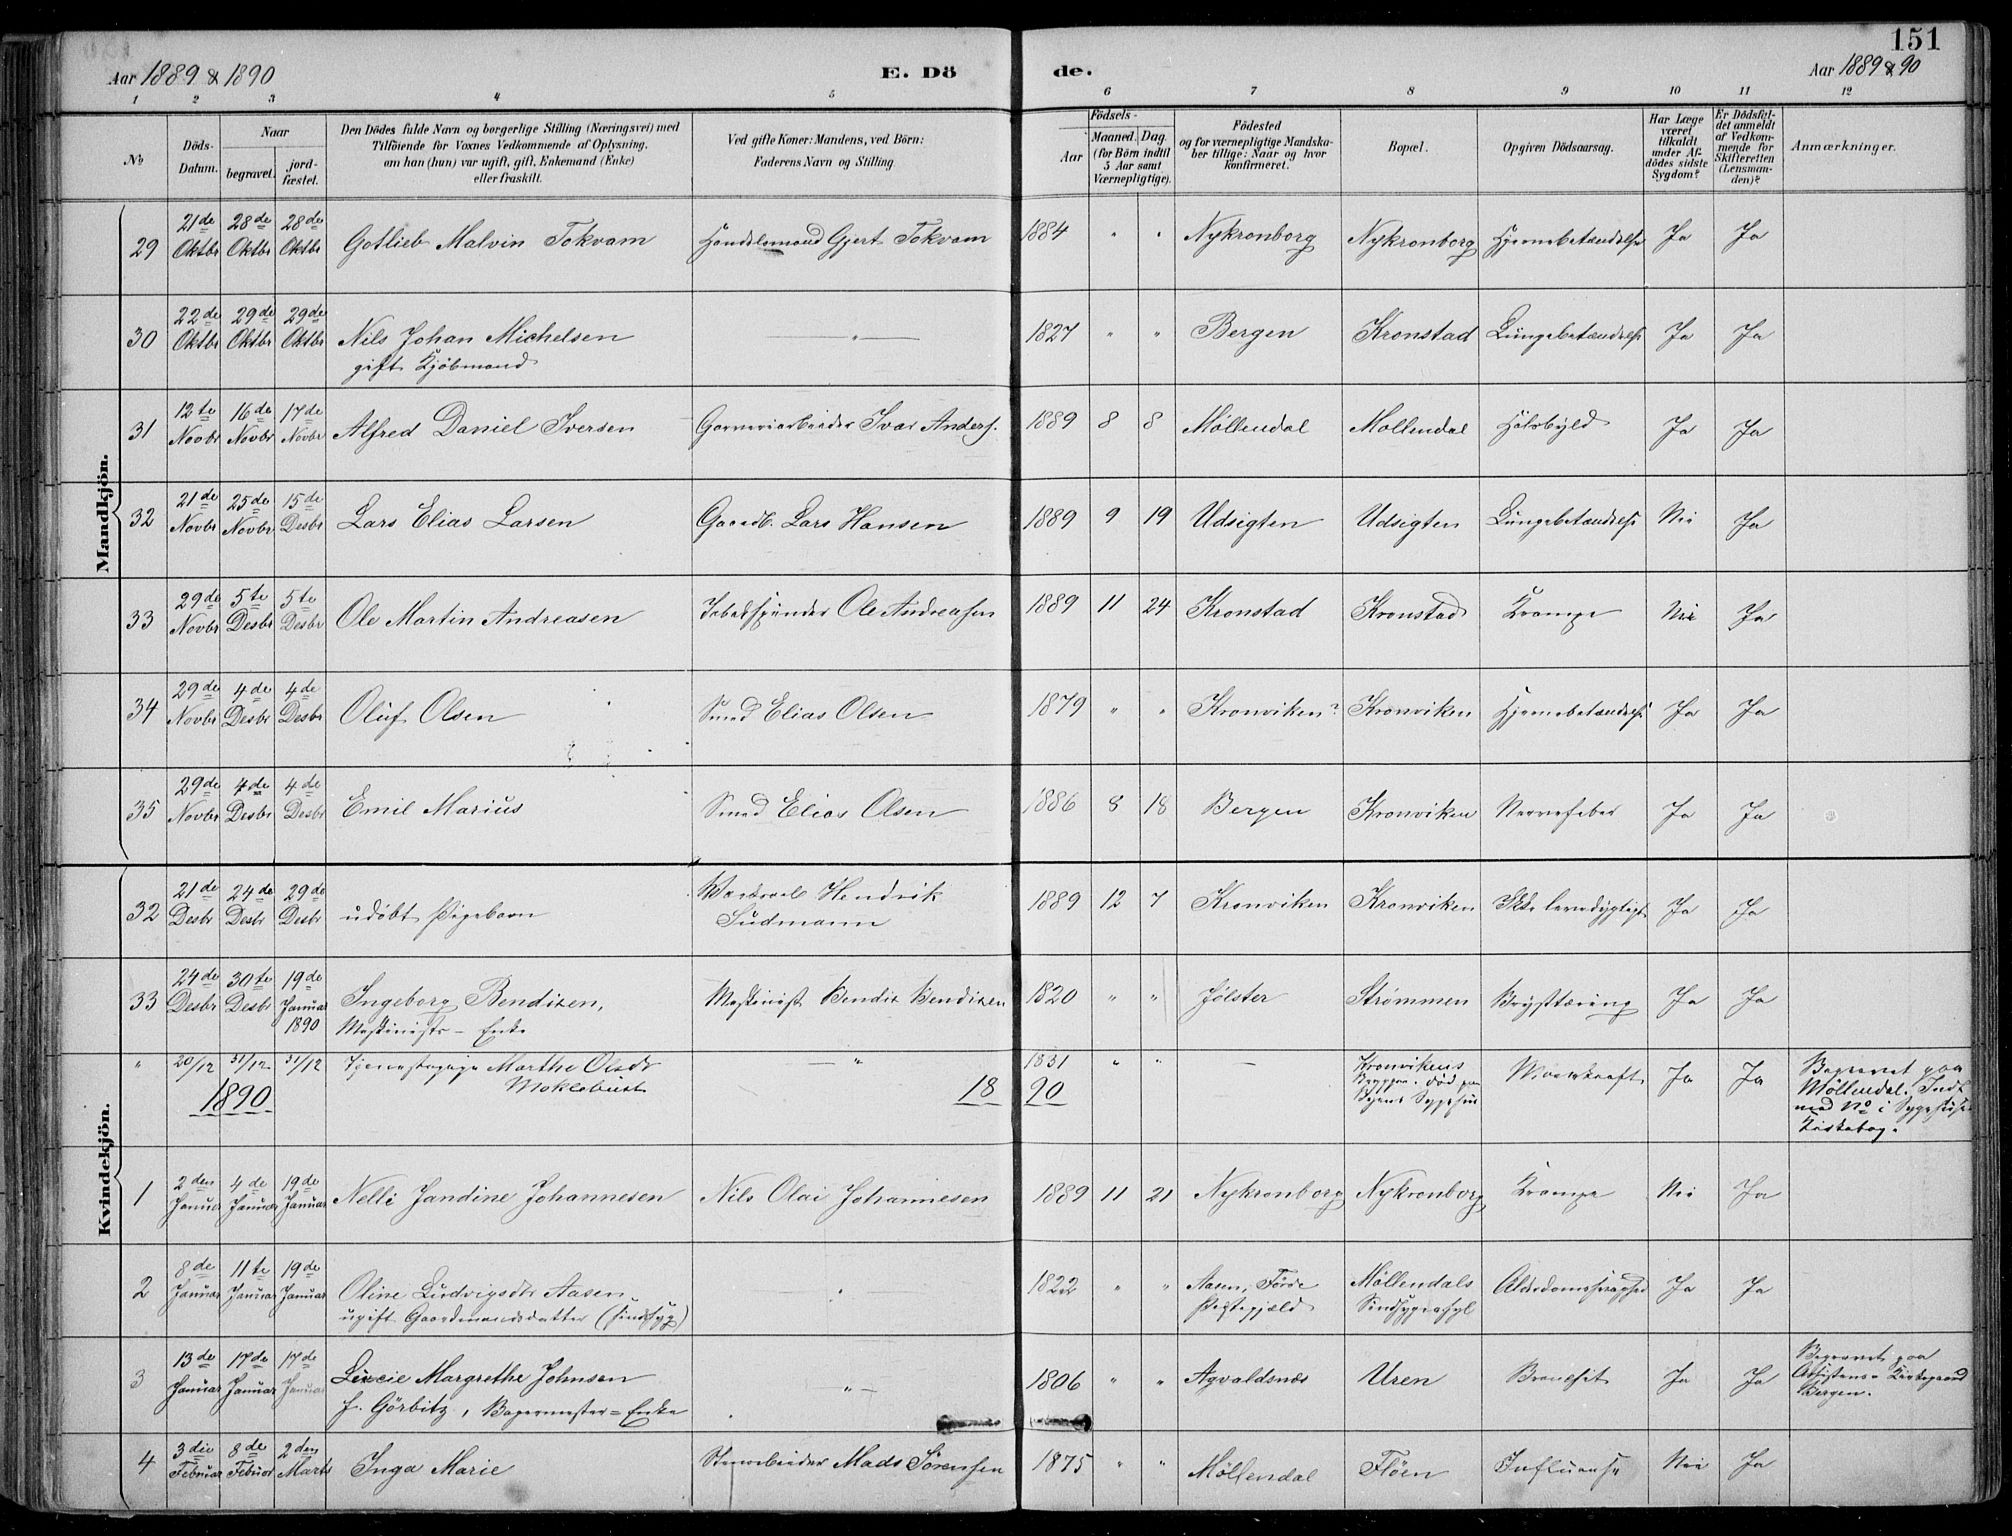 151
Aar 1889 & 1890
E. Dö
de.
Aar 1889 & 90
1 2 3 4 5 6 7 8 9 10 11 12
No
Döds-Datum.
Naar
begravet.
jord-fæstet.
Den Dödes fulde Navn og borgerlige Stilling (Næringsvei) med
Tilföiende for Voxnes Vedkommende af Oplysning,
om han (hun) var ugift, gift, Enkemand (Enke)
eller fraskilt.
Ved gifte Koner: Mandens, ved Börn:
Faderens Navn og Stilling.
Födsels-
Aar
Maaned. Dag.
(for Börn indtil
5 Aar samt
Værnepligtige).
Födested
og for værnepligtige Mandska-
ber tillige: Naar og hvor
konfirmeret.
Bopæl.
Opgiven Dödsaarsag.
Har Læge
været
tilkaldt
under Af-
dödes sidste
Sygdom?
Er Dödsfal-
det anmeldt
af Vedkom-
mende for
Skifteretten
(Lensman-
den)?
Anmærkninger.
Mandkjön.
21de 28de 28de
29 Oktbr Oktbr Oktbr Gotlieb Malvin Tokvam Handelsmand Gjert Tokvam 1884 " " Nykronborg Nykronborg Hjernebetændelse Ja Ja
22de 29de 29de
30 Oktbr Oktbr Oktbr Nils Johan Michelsen — " — 1827 " " Bergen Kronstad Lungebetændelse Ja Ja
gift Kjöbmand
12te 16de 17de
31 Novbr Novbr Novbr Alfred Daniel Iversen Garveriarbeider Ivar Anders. 1889 8 8 Møllendal Møllendal Halsbyld Ja Ja
21de 25de 15de
32 Novbr Novbr Desbr Lars Elias Larsen Gaardb. Lars Hansen 1889 9 19 Udsigten Udsigten Lungebetændelse Nei Ja
29de 5te 5te
33 Novbr Desbr Desbr Ole Martin Andreasen Tobakspinder Ole Andreasen 1889 11 24 Kronstad Kronstad Krampe Nei Ja
29de 4de 4de
34 Novbr Desbr Desbr Oluf Olsen Smed Elias Olsen 1879 " " Kronviken? Kronviken Hjernebetændelse Ja Ja
29de 4de 4de
35 Novbr Desbr Desbr Emil Marius Smed Elias Olsen 1886 8 18 Bergen Kronviken Nervefeber Ja Ja
Kvindekjön.
21de 24de 29de
32 Desbr Desbr Desbr udöbt Pigebarn Hendrik
Sudmann 1889 12 7 Kronviken Kronviken Ikke levedygtigt Ja Ja
24de 30te 19de
33 Desbr Desbr Januar 1890 Ingeborg Bendixen, Maskinist Bendix Bendixen 1820 " " Jølster Strømmen Brysttæring Ja Ja
Maskinists - Enke
" 20/12 31/12 31/12 Tjenestepige Marthe Olsdr — " 1831 " " — Kronvikens
Møklebust død paa
Byens Sygehus Ja Ja Begravet paa
Møllendal. Indt
med No i Sygehusets
Kirkebog.
1890 18 90
2den 4de 19de
1 Januar Januar Januar Nelli Jandine Johannesen Nils Olai Johannesen 1889 11 21 Nykronborg Nykronborg Krampe Nei Ja
8de 11te 19de
2 Januar Januar Januar Oline Ludvigsdtr Aasen " 1822 " " Aasen, Förde Møllendals Alderdomssvaghed Ja Ja
ugift Gaardmandsdatter (sindssyg) Præstegjæld Sindsygeasyl
13de 17de 17de
3 Januar Januar Januar Lucie Margrethe Johnsen " — 1806 " " Agvaldsnæs Uren Bronchit Ja Ja Begravet paa
Assistens-Kirkegaard
Bergen.
f. Görbitz, Bagermester = Enke
3die 8de 2den
4 Februar Februar Marts Inga Marie Stenarbeider Mads Sörensen 1875 " " Møllendal Flöen Influensa Nei Ja